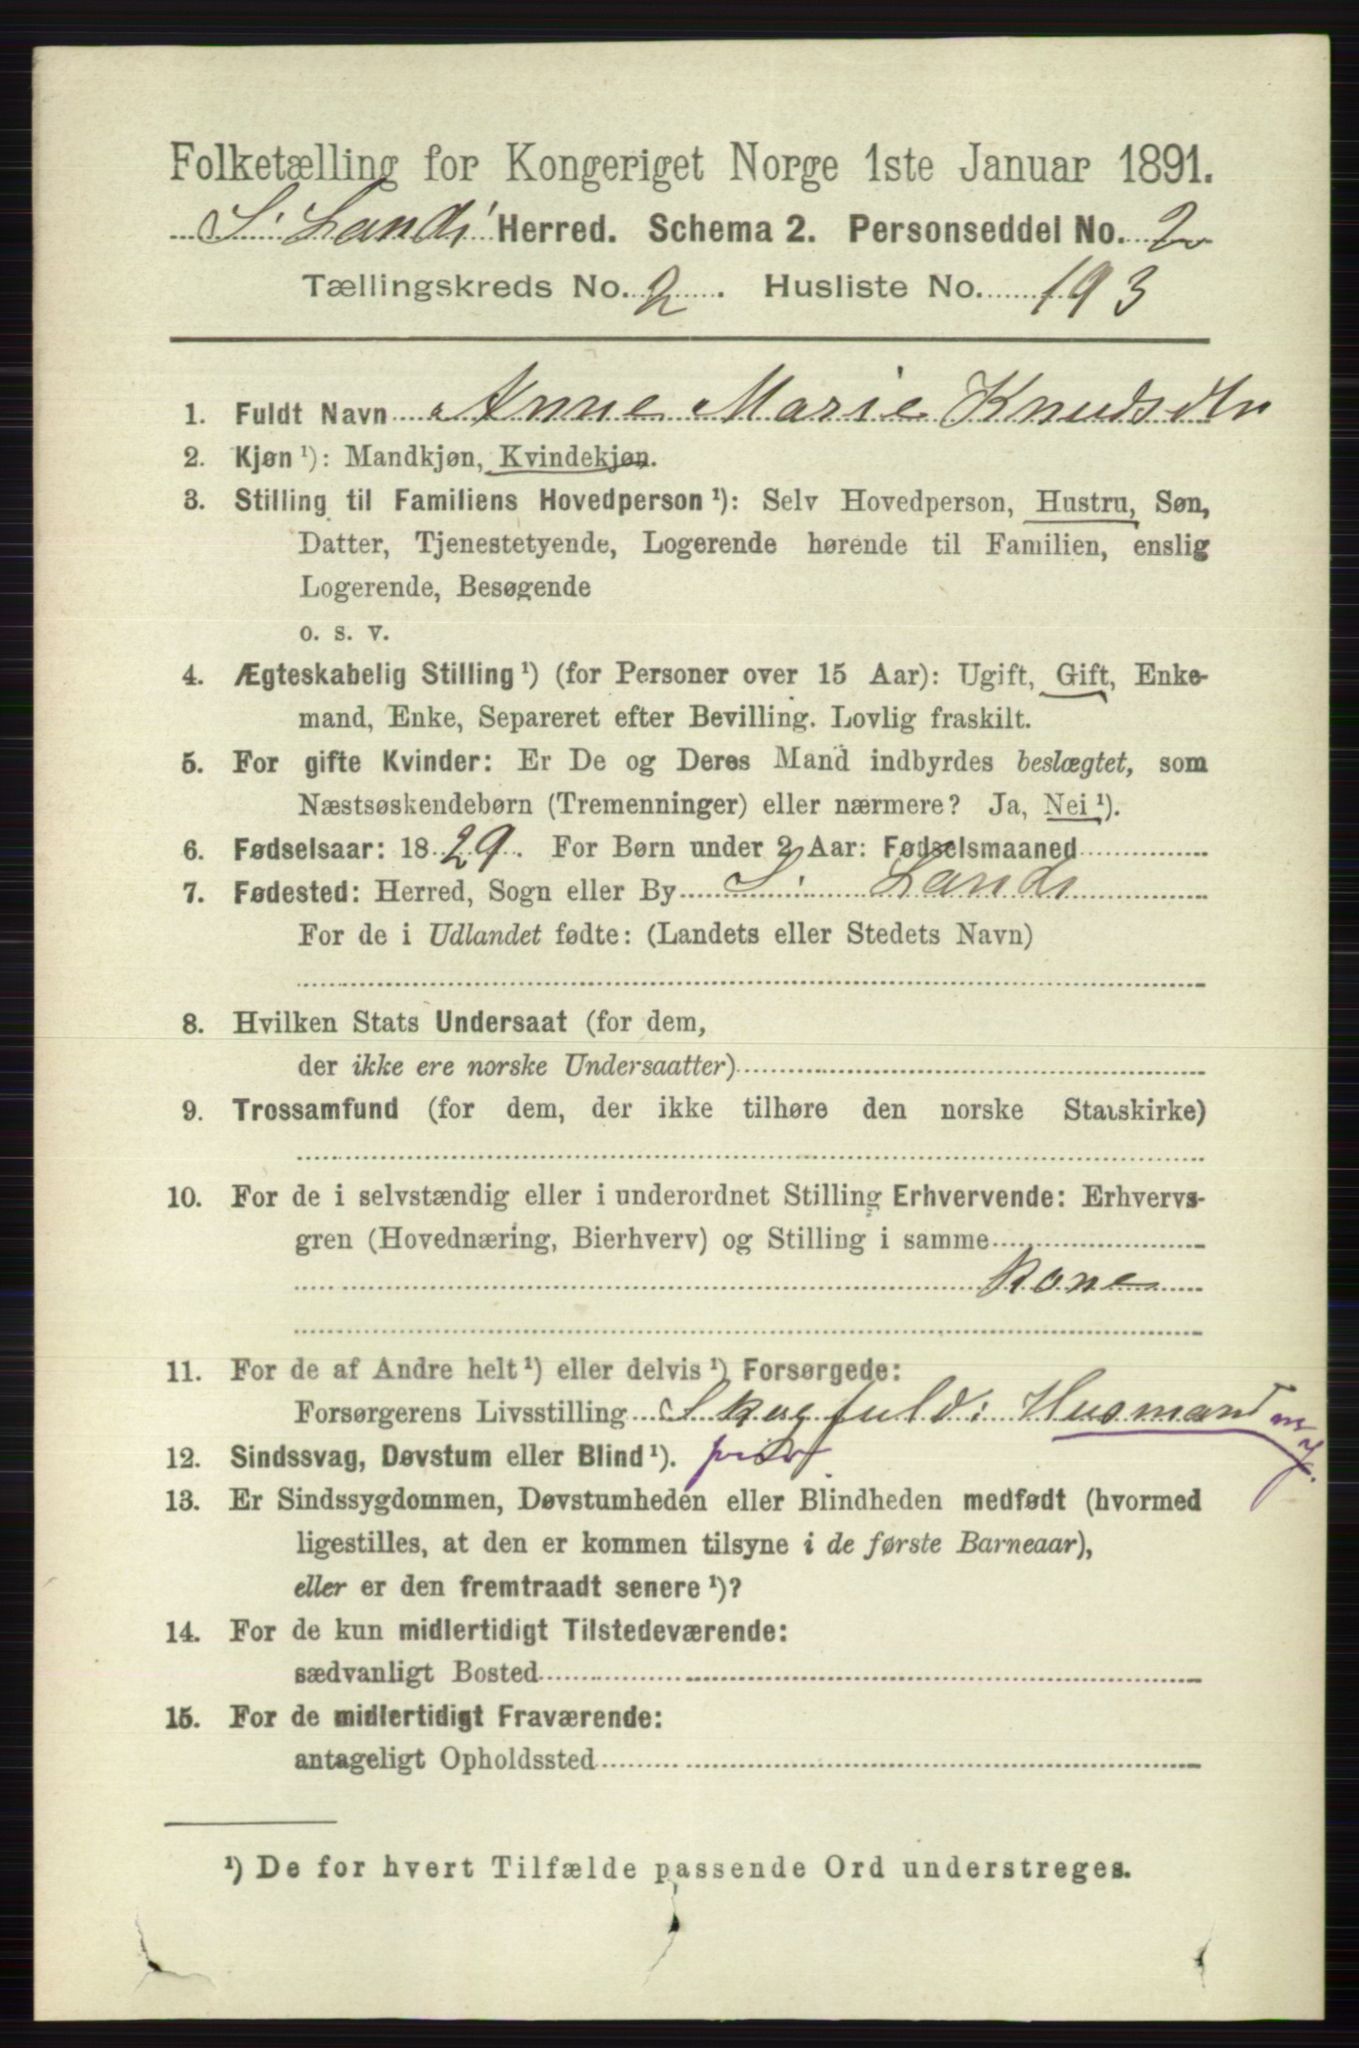 Folketælling for Kongeriget Norge 1ste Januar 1891.
S. Lands Herred. Schema 2. Personseddel No. 2
Tællingskreds No. 2. Husliste No. 193
1. Fuldt Navn Anne Marie Knudsdtr
2. Kjøn ¹): Mandkjøn, Kvindekjøn.
3. Stilling til Familiens Hovedperson ¹): Selv Hovedperson, Hustru, Søn,
Datter, Tjenestetyende, Logerende hørende til Familien, enslig
Logerende, Besøgende
o. s. v.
4. Ægteskabelig Stilling ¹) (for Personer over 15 Aar): Ugift, Gift, Enke-
mand, Enke, Separeret efter Bevilling. Lovlig fraskilt.
5. For gifte Kvinder: Er De og Deres Mand indbyrdes beslægtet, som
Næstsøskendebørn (Tremenninger) eller nærmere? Ja, Nei ¹).
6. Fødselsaar: 1829. For Børn under 2 Aar: Fødselsmaaned
7. Fødested: Herred, Sogn eller By S. Lands
For de i Udlandet fødte: (Landets eller Stedets Navn)
8. Hvilken Stats Undersaat (for dem,
der ikke ere norske Undersaatter)
9. Trossamfund (for dem, der ikke tilhøre den norske Statskirke)
10. For de i selvstændig eller i underordnet Stilling Erhvervende: Erhvervs-
gren (Hovednæring, Bierhverv) og Stilling i samme
Kone
11. For de af Andre helt ¹) eller delvis ¹) Forsørgede:
Forsørgerens Livsstilling Husmand
12. Sindssvag, Døvstum eller Blind ¹).
13. Er Sindssygdommen, Døvstumheden eller Blindheden medfødt (hvormed
ligestilles, at den er kommen tilsyne i de første Barneaar),
eller er den fremtraadt senere ¹)?
14. For de kun midlertidigt Tilstedeværende:
sædvanligt Bosted
15. For de midlertidigt Fraværende:
antageligt Opholdssted
¹) De for hvert Tilfælde passende Ord understreges.